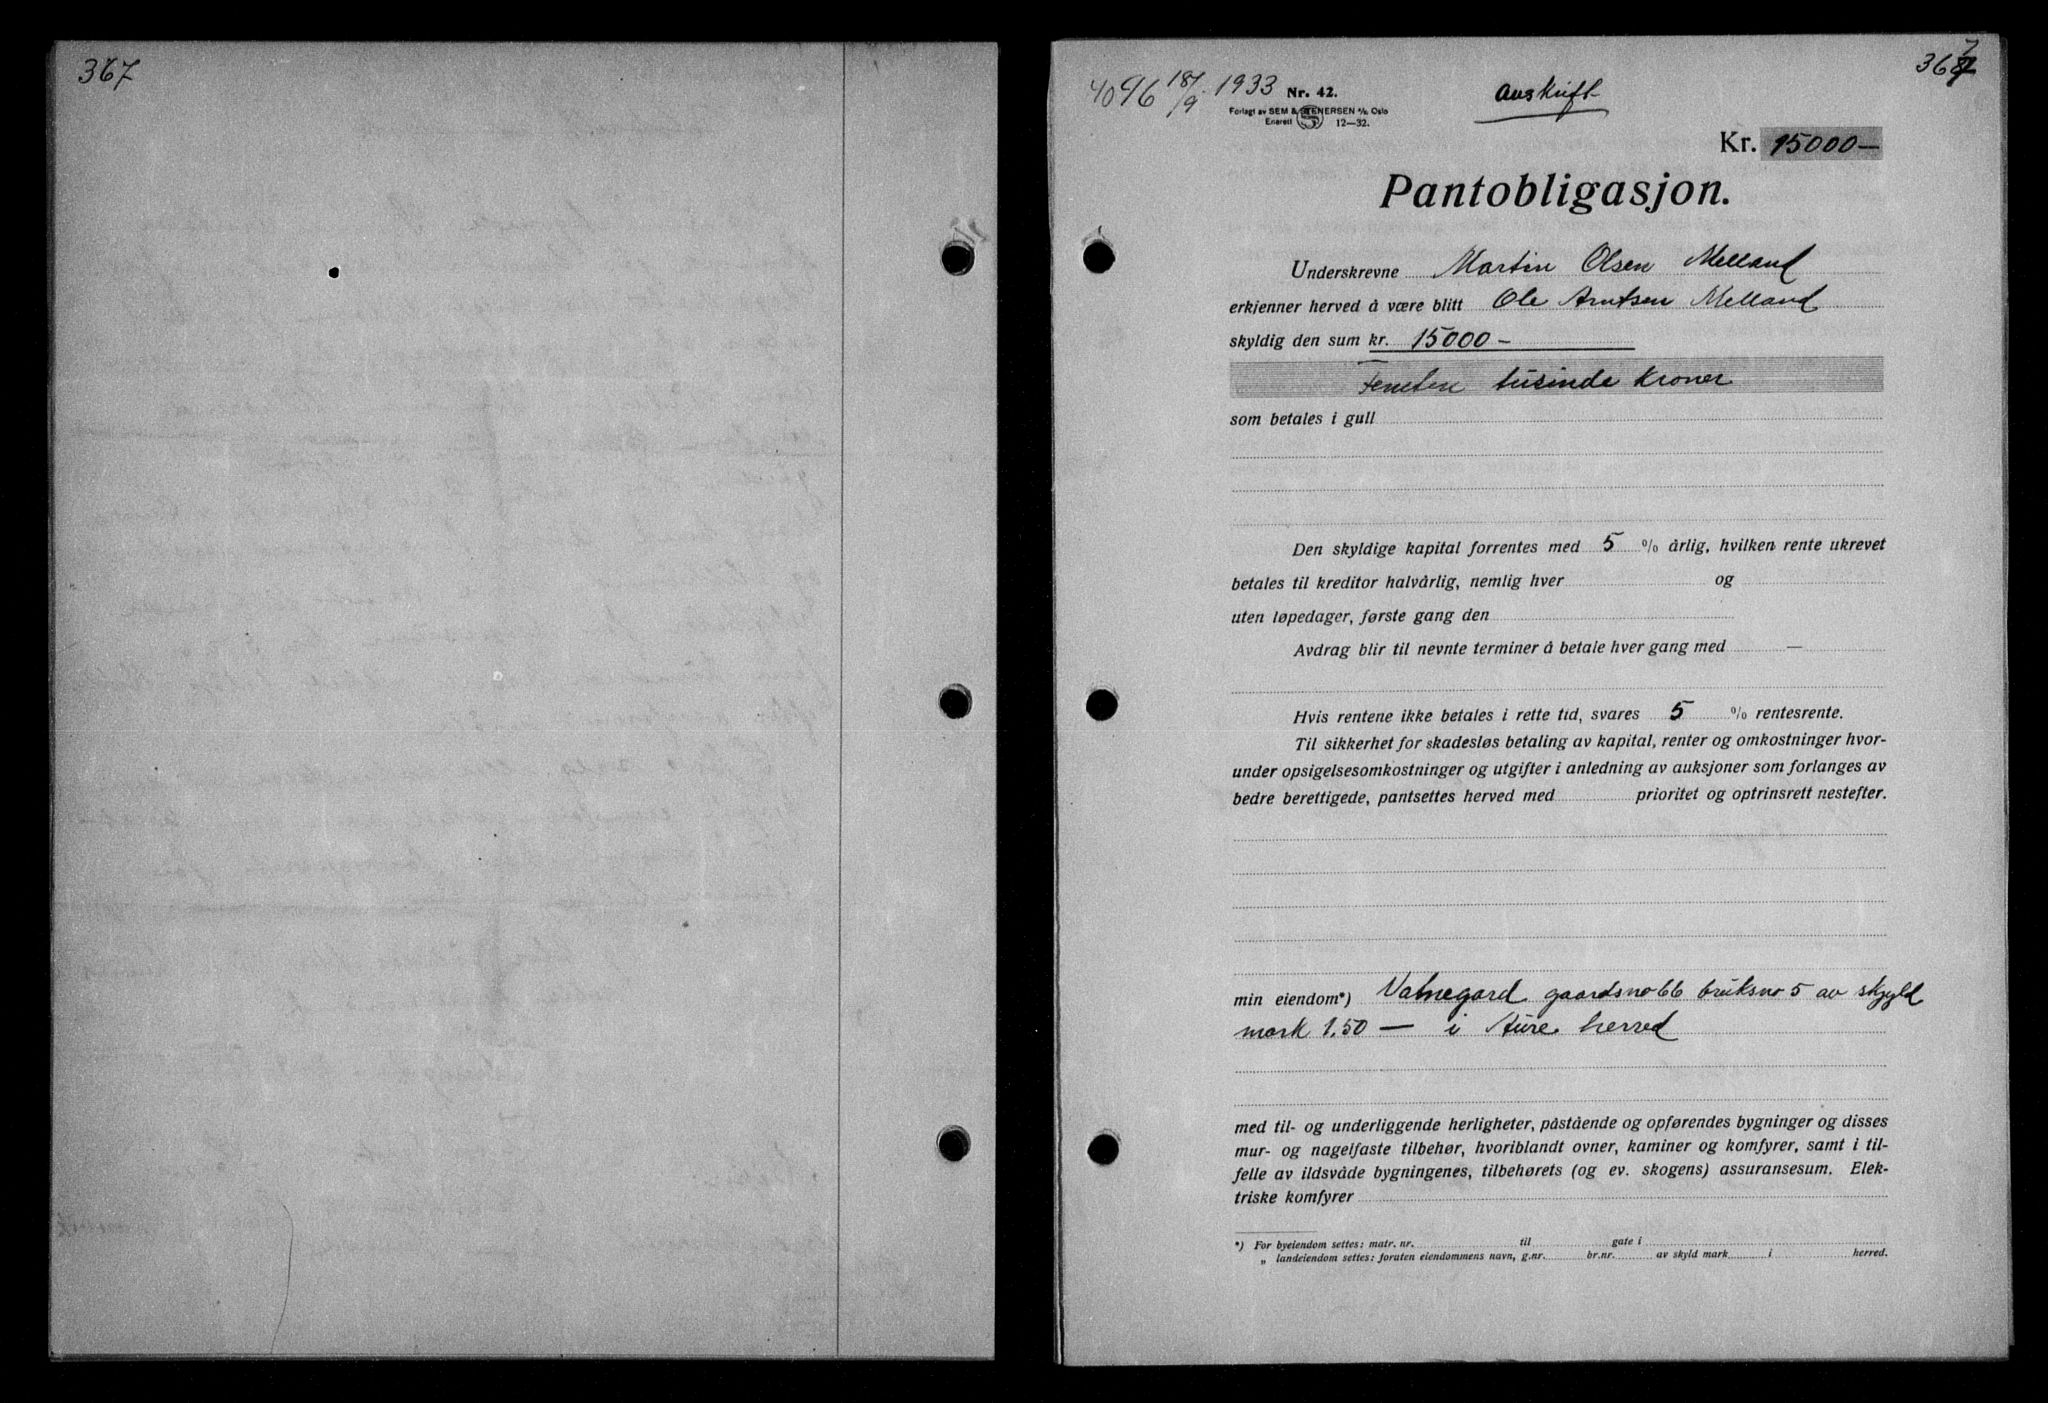 367
367
4096 18/9 1933
Nr. 42.
Forlagt av SEM & STENERSEN A/S Oslo
Enerett 12—32.
Avskrift
Kr. 15000 —
Pantobligasjon.
Underskrevne Martin Olsen Melland
erkjenner herved å være blitt Ole Arntsen Melland
skyldig den sum kr. 15000 —
Femten tusinde kroner
som betales i gull
Den skyldige kapital forrentes med 5 % årlig, hvilken rente ukrevet
betales til kreditor halvårlig, nemlig hver og
uten løpedager, første gang den
Avdrag blir til nevnte terminer å betale hver gang med —
Hvis rentene ikke betales i rette tid, svares 5 % rentesrente.
Til sikkerhet for skadesløs betaling av kapital, renter og omkostninger hvor-
under opsigelsesomkostninger og utgifter i anledning av auksjoner som forlanges av
bedre berettigede, pantsettes herved med prioritet og optrinsrett nestefter.
min eiendom*) gaardsno 66 bruksno 5 av skyld
mark 1,50 — i Aure herred
med til- og underliggende herligheter, påstående og opførendes bygninger og disses
mur- og nagelfaste tilbehør, hvoriblandt ovner, kaminer og komfyrer, samt i til-
felle av ildsvåde bygningenes, tilbehørets (og ev. skogens) assuransesum. Elek-
triske komfyrer
*) For byeiendom settes: matr. nr. til gate i
„ landeiendom settes: foruten eiendommens navn, g.nr. br.nr. av skyld mark i herred.